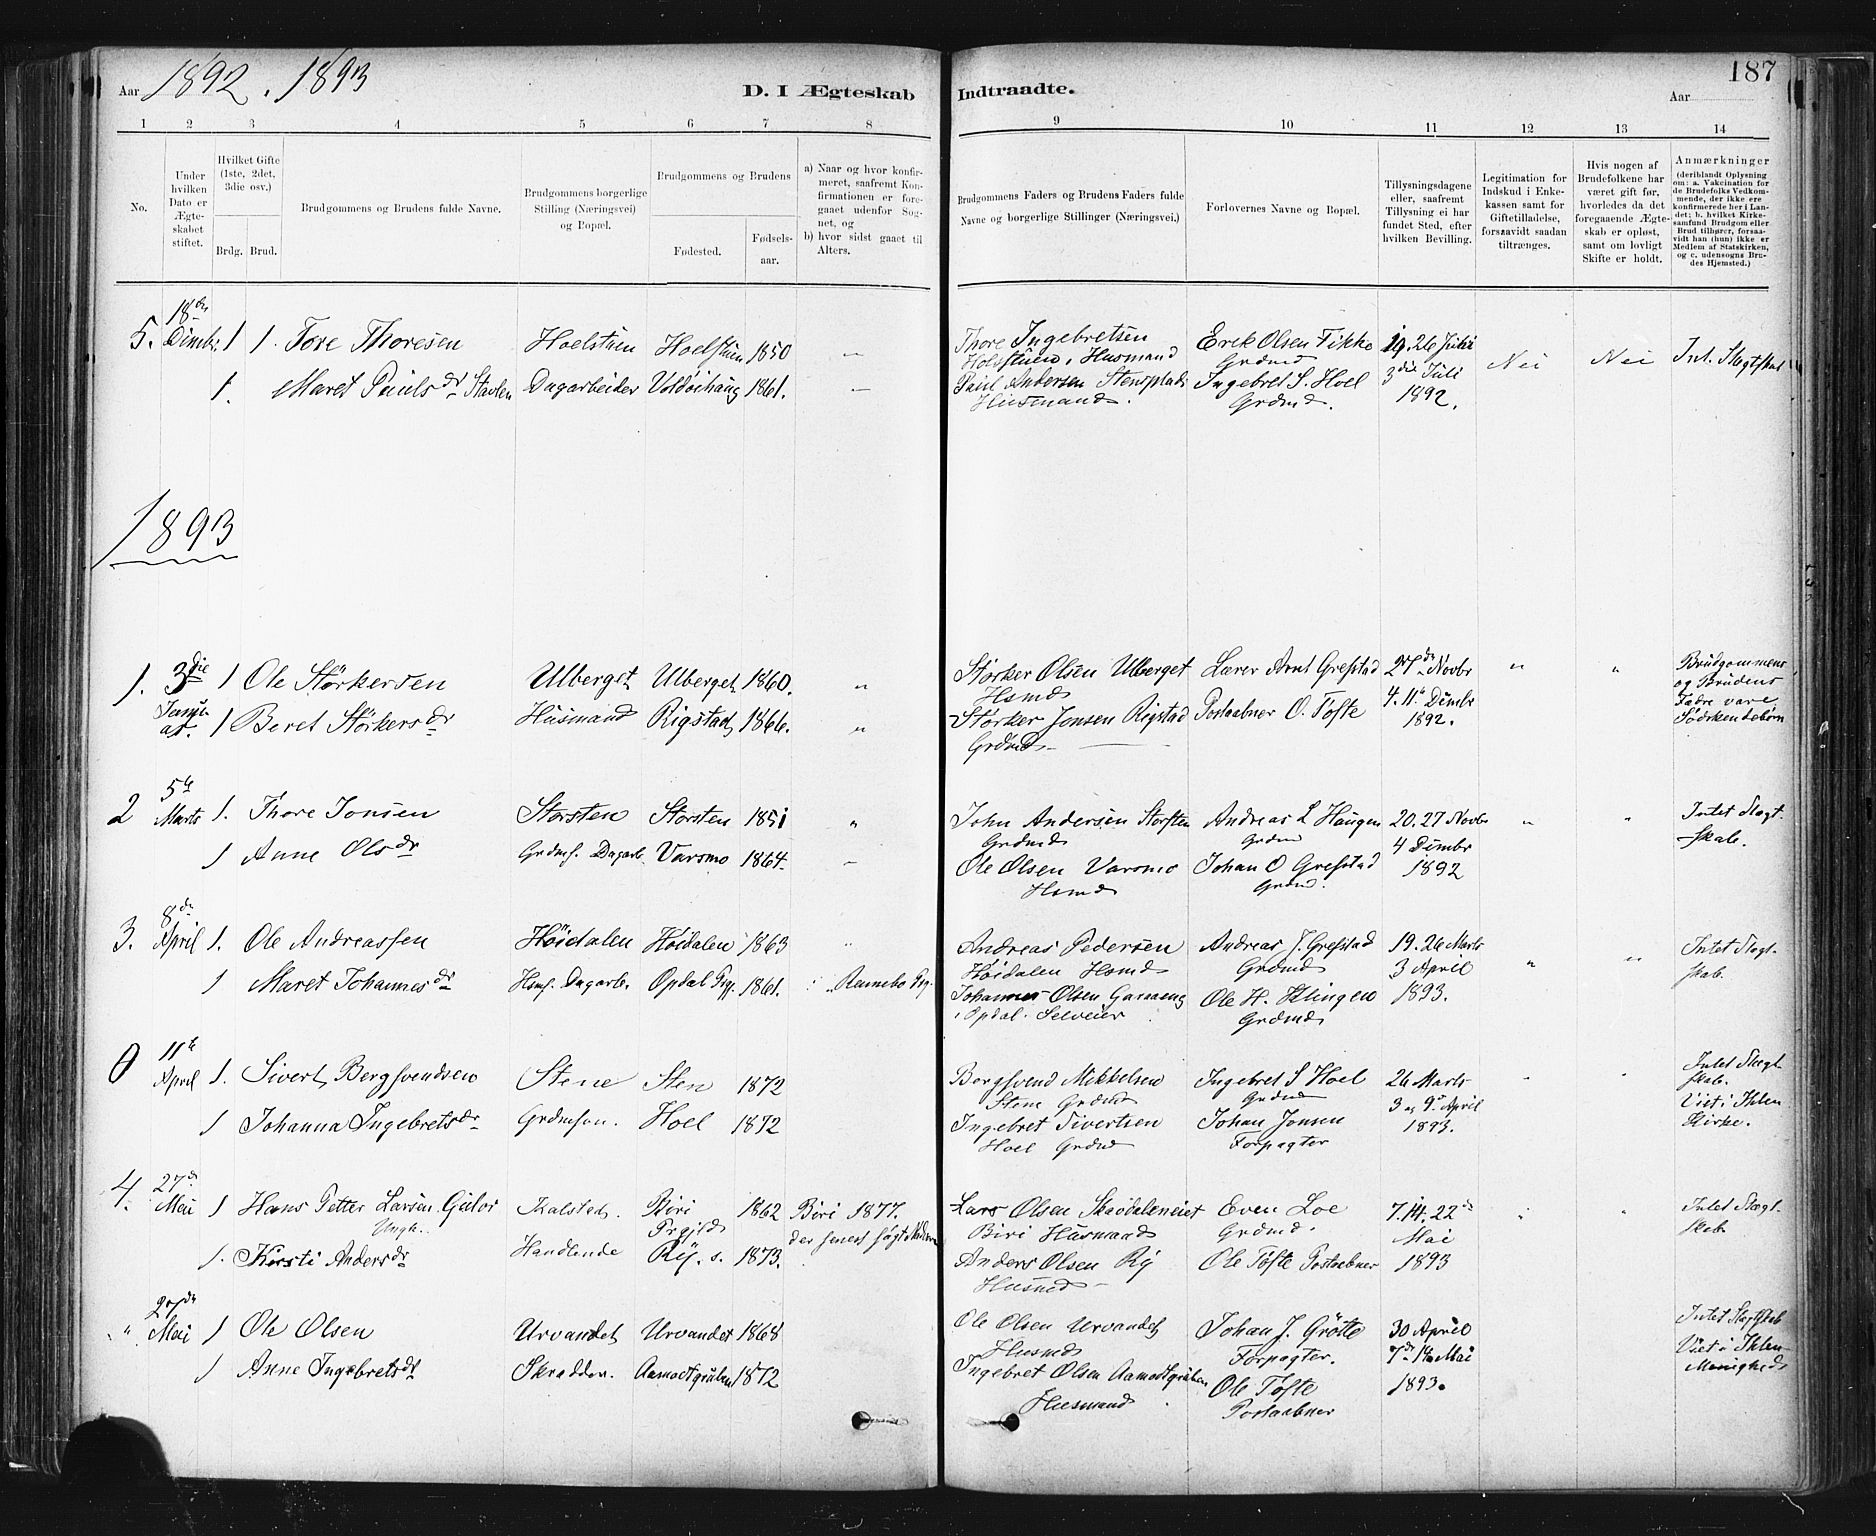 Aar 1892. 1893
D. I Ægteskab Indtraadte.
187
Aar
1 2 3 4 5 6 7 8 9 10 11 12 13 14
No.
Under hvilken Dato er Ægteskabet stiftet.
Hvilket Gifte (1ste, 2det, 3die osv.)
Brdg. Brud.
Brudgommens og Brudens fulde Navne.
Brudgommens borgerlige Stilling (Næringsvei) og Bopæl.
Brudgommens og Brudens
Fødested. Fødselsaar.
a) Naar og hvor konfirmeret, saafremt Konfirmationen er foregaaet udenfor Sognet, og
b) hvor sidst gaaet til Alters.
Brudgommens Faders og Brudens Faders fulde Navne og borgerlige Stillinger (Næringsvei.)
Forlovernes Navne og Bopæl.
Tillysningsdagene eller, saafremt Tillysning ei har fundet Sted, efter hvilken Bevilling.
Legitimation for Indskud i Enkekassen samt for Giftetilladelse, forsaavidt saadan tiltrænges.
Hvis nogen af Brudefolkene har været gift før, hvorledes da det foregaaende Ægteskab er opløst, samt om lovligt Skifte er holdt.
Anmærkninger (deriblandt Oplysning om: a. Vakcination for de Brudefolks Vedkommende, der ikke ere konfirmerede her i Landet; b. hvilket Kirkesamfund Brudgom eller Brud tilhører, forsaavidt han (hun) ikke er Medlem af Statskirken, og c. udensogns Brudes Hjemsted.)
5. 18de Dembr. 1 1. Tore Thoresen Hoelstuen Hoelstuen 1850 " Thore Ingebretsen Erek Olsen Fikke 19. 26 Juni Nei Nei Int. Slagtskab
Holstuen, Husmand Grdmd
1. Maret Paulsdr Stavlen Dagarbeider Voldøihaug 1861. " Paul Andersen Stensplads Ingebret S. Hoel 3die Juli
Husmand. Grdmd. 1892.
1893
1. 3die Januar. 1 Ole Størkersen Ulberget Ulberget 1860. " Størker Olsen Ulberget Lærer Arnt Grefstad 27de Novbr " " Brudgommens
Hsmd 4. 11te Dembr og Brudens
1 Beret Størkersdr Husmand Rigstad 1866. " Størker Jonsen Rigstad Postaabner O. Tofte 1892. Fædre vare
Grdmd Sødskendebørn
2 5te Marts 1. Thore Jonsen Storsten Storsten 1851 " John Andersen Storsten Andreas L Haugen 20. 27 Novbr " " Intet Slagt-
Grdmd Grdmd 4 Dembr skab.
1 Anne Olsdr Grdms. Dagarb. Varsmo 1864. " Ole Olsen Varsmo Johan O Grefstad 1892
Hsmd Grdmd.
3. 8de April 1. Ole Andreassen Høidalen Høidalen 1863 " Andreas Pedersen Andreas J. Grefstad 19. 26 Marts " " Intet Slagt-
Høidalen Hsmd Grdmd 3 April skab.
1 Maret Johannesdr Hsms. Dagarb. Opdal Prg. 1861. Rennebo Prg. Johannes Olsen Ole H. Klingen 1893.
i Opdal. Selveier Grdmd
0 11te April 1. Sivert Bergsvendsen Stene Sten 1872 Bergsvend Mikkelsen Ingebret S Hoel 26 Marts " " Intet Slagt-
Stene Grdmd Grdmd 3 og 9de April skab.
1 Johanna Ingebretsdr Grdmsøn. Hoel 1872 Ingebret Sivertsen Johan Jonsen 1893. Viet i Ihlen
Hoel Grdmd Forpagter Kirke.
4. 27de Mai 1 Hans Petter Larsen Ungk. Kalstad. Biri Prgjld 1862 Biri 1877. Lars Olsen Even Loe 7. 14. 22de " " Intet Slagt-
Biri Husmand Grdmd. Mai skab
1. Kirsti Andersdr Handlende Ry. s. 1873. Anders Olsen Ry Ole Tofte Postaabner 1893
Husmd
" 27de Mai 1 Ole Olsen Urvandet Urvandet 1868 Ole Olsen Urvandet Johan J. Grøtte 30 April Intet Slagtskab
Husmd Forpagter. 7de 14. Mai Viet i Ihlen
1 Anne Ingebretsdt Skrædder. Aamodtgruben 1872 Ingebret Olsen Aamodtgruben Ole Tofte 1893. Menighed
Husmand Postaabner